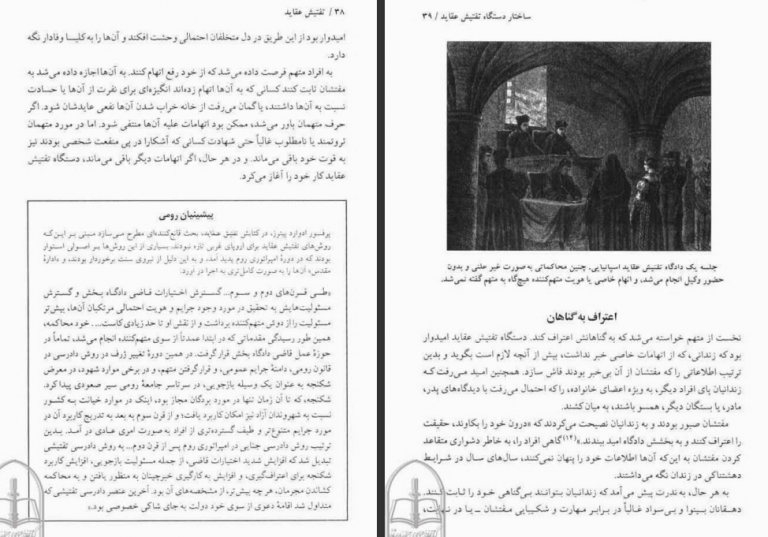 ۳۸ / تفتیش عقاید
امیدوار بود از این طریق در دل متخلفان احتمالی وحشت افکند و آن‌ها را به کلیسا وفادار نگه
دارد.
به افراد متهم فرصت داده می‌شد که از خود رفع اتهام کنند. به آن‌ها اجازه داده می‌شد به
مفتشان ثابت کنند کسانی که به آن‌ها اتهام زده‌اند انگیزه‌ای برای نفرت از آن‌ها یا حسادت
نسبت به آن‌ها داشتند، یا گمان می‌رفت از خانه خراب شدن آن‌ها نفعی عایدشان شود. اگر
حرف متهمان باور می‌شد، ممکن بود اتهامات علیه آن‌ها منتفی شود. اما در مورد متهمان
ثروتمند یا نامطلوب غالباً حتی شهادت کسانی که آشکارا در پی منفعت شخصی بودند نیز
به قوت خود باقی می‌ماند. و در هر حال، اگر اتهامات دیگر باقی می‌ماند، دستگاه تفتیش
عقاید کار خود را آغاز می‌کرد.
پیشینیان رومی
پرفسور ادوارد پیترز، در کتابش تفتیش عقاید، بحث قانع‌کننده‌ای مطرح می‌سازد مبنی بر این‌که
روش‌های تفتیش عقاید برای اروپای غربی تازه نبودند. بسیاری از این روش‌ها بر اصولی استوار
بودند که در دورهٔ امپراتوری روم پدید آمد، و به این دلیل از نیروی سنت برخوردار بودند، و ادارهٔ
مقدس آن‌ها را به صورت کامل‌تری به اجرا در آورد.
«طی قرن‌های دوم و سوم... گسترش اختیارات قاضی دادگاه بخش و گسترش
مسئولیت‌هایش به تحقیق در مورد وجود جرایم و هویت احتمالی مرتکبان آن‌ها، بیش‌تر
مسئولیت را از دوش متهم‌کننده برداشت و از نقش او تا حد زیادی کاست... . خود محاکمه،
همین طور رسیدگی مقدماتی که در ابتدا عمدتاً از سوی متهم‌کننده انجام می‌شد، تماماً در
حوزهٔ عمل قاضی دادگاه بخش قرار گرفت. در همین دورهٔ تغییر ژرف در روش دادرسی در
قانون رومی، دامنهٔ جرایم عمومی، و قرار گرفتن متهم، و در برخی موارد شهود، در معرض
شکنجه به عنوان یک وسیله بازجویی، در سرتاسر جامعهٔ رومی سیر صعودی پیدا کرد.
شکنجه، که تا آن زمان تنها در مورد بردگان مجاز بود، اینک در موارد خیانت به کشور
نسبت به شهروندان آزاد نیز امکان کاربرد یافت؛ و از قرن سوم به بعد به تدریج کاربرد آن در
مورد جرایم متنوع‌تر و طیف گسترده‌تری از افراد به صورت امری عادی در آمد. بدین
ترتیب روش دادرسی جنایی در امپراتوری روم پس از قرن دوم... به روش دادرسی تفتیشی
تبدیل شد که افزایش شدید اختیارات قاضی، از جمله مسئولیت بازجویی، افزایش کاربرد
شکنجه برای اعتراف‌گیری، و افزایش به کارگیری خبرچینان به منظور یافتن و به محاکمه
کشاندن مجرمان، هر چه بیش‌تر، از مشخصه‌های آن بود. آخرین عنصر دادرسی تفتیشی که
متداول شد اقامهٔ دعوی از سوی خود دولت به جای شاکی خصوصی بود.»
ساختار دستگاه تفتیش عقاید / ۳۹
جلسه یک دادگاه تفتیش عقاید اسپانیایی. چنین محاکماتی به‌صورت غیر علنی و بدون
حضور وکیل انجام می‌شد، و اتهام خاصی یا هویت متهم‌کننده هیچ‌گاه به متهم گفته نمی‌شد.
اعتراف به گناهان
نخست از متهم خواسته می‌شد که به گناهانش اعتراف کند. دستگاه تفتیش عقاید امیدوار
بود که زندانی، که از اتهامات خاصی خبر نداشت، بیش از آنچه لازم است بگوید و بدین
ترتیب اطلاعاتی را که مفتشان از آن بی‌خبر بودند فاش سازد. همچنین امید می‌رفت که
زندانیان پای افراد دیگر، به ویژه اعضای خانواده، را که احتمال می‌رفت با دیدگاه‌های پدر،
مادر، یا بستگان دیگر، همسو باشند، به میان کشند.
مفتشان صبور بودند و به زندانیان نصیحت می‌کردند که «درون خود را بکاوند، حقیقت
را اعتراف کنند و به بخشش دادگاه امید ببندند.»(۱۴) گاهی افراد را، به خاطر دشواری متقاعد
کردن مفتشان به این‌که آن‌ها اطلاعات خود را پنهان نمی‌کنند، سال‌های سال در شرایط
دهشتناکی در زندان نگه می‌داشتند.
به هر حال، به ندرت پیش می‌آمد که زندانیان بتوانند بی‌گناهی خود را ثابت کنند.
دهقانان بینوا و بی‌سواد غالباً در برابر مهارت و شکیبایی مفتشان ـ یا در نهایت،